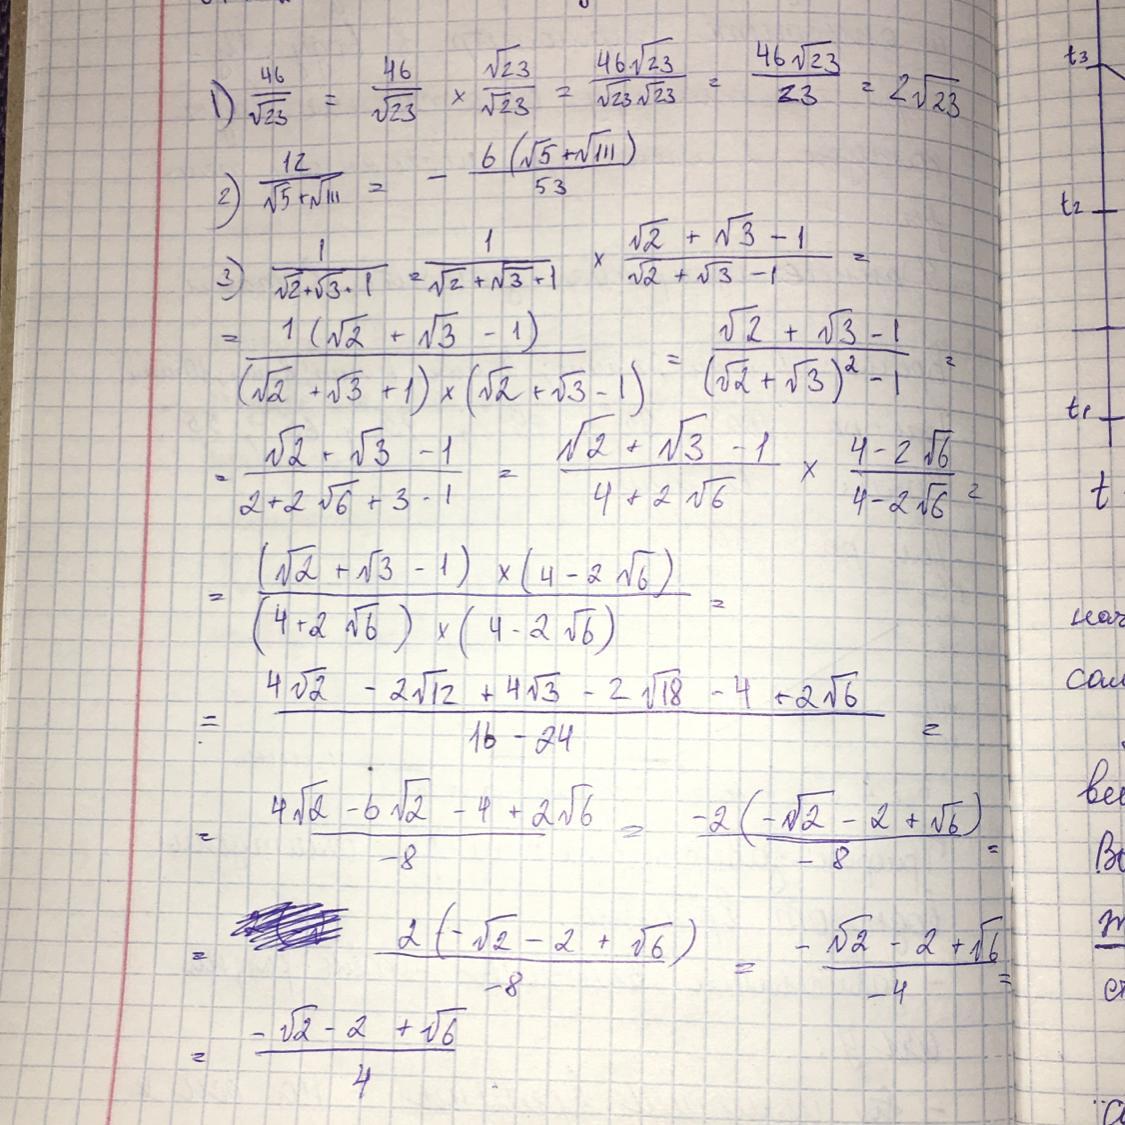 1) 46/√23 = 46/√23 × √23/√23 = 46√23/√23√23 = 46√23/23 = 2√23
2) 12/√5+√111 = - 6(√5+√111)/53
3) 1/√2+√3+1 = 1/√2+√3+1 × √2+√3-1/√2+√3-1 =
= 1(√2+√3-1)/(√2+√3+1)×(√2+√3-1) = √2+√3-1/(√2+√3)²-1 =
= √2+√3-1/2+2√6+3-1 = √2+√3-1/4+2√6 × 4-2√6/4-2√6 =
= (√2+√3-1)×(4-2√6)/(4+2√6)×(4-2√6) =
= 4√2-2√12+4√3-2√18-4+2√6/16-24 =
= 4√2-6√2-4+2√6/-8 = -2(-√2-2+√6)/-8 =
= 2(-√2-2+√6)/-8 = -√2-2+√6/-4 =
= -√2-2+√6/4
t3
t2
t1
t